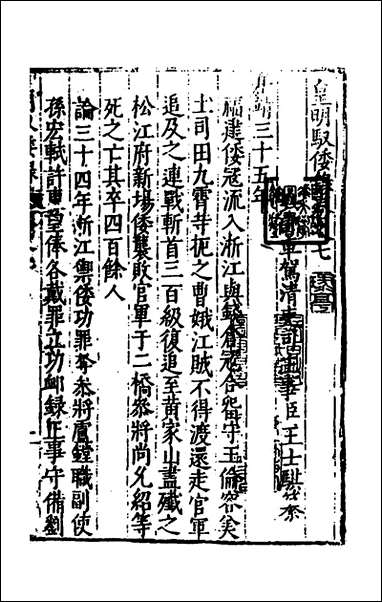 皇明馭倭錄卷之七
車駕清吏司主事臣王士騏
嘉靖三十五年
福建倭冦流入浙江與錢倉冦合畱守王倫容美
土司田九霄等扼之曹娥江賊不得渡還走官軍
追及之連戰斬首三百級復追至黄家山盡殱之
松江府新塲倭襲敗官軍于二橋叅將尚允紹等
死之亡其卒四百餘人
論三十四年浙江禦倭功罪奪叅將盧鏜職副使
孫宏軾許東望俸各戴罪立功邮録死事守備劉